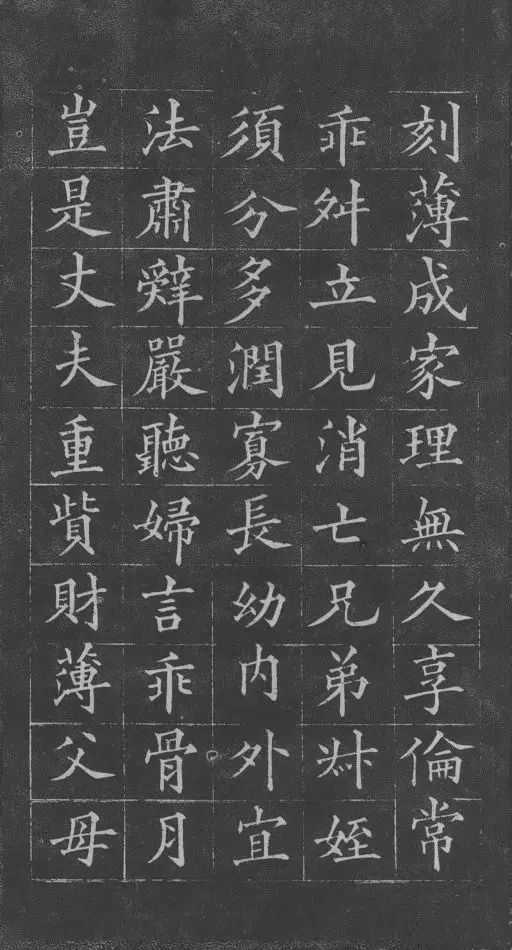 刻薄成家理無久享倫常
乖舛立見消亡兄弟叔姪
須分多潤寡長幼内外宜
法肅辭嚴聽婦言乖骨月
豈是丈夫重貲財薄父母